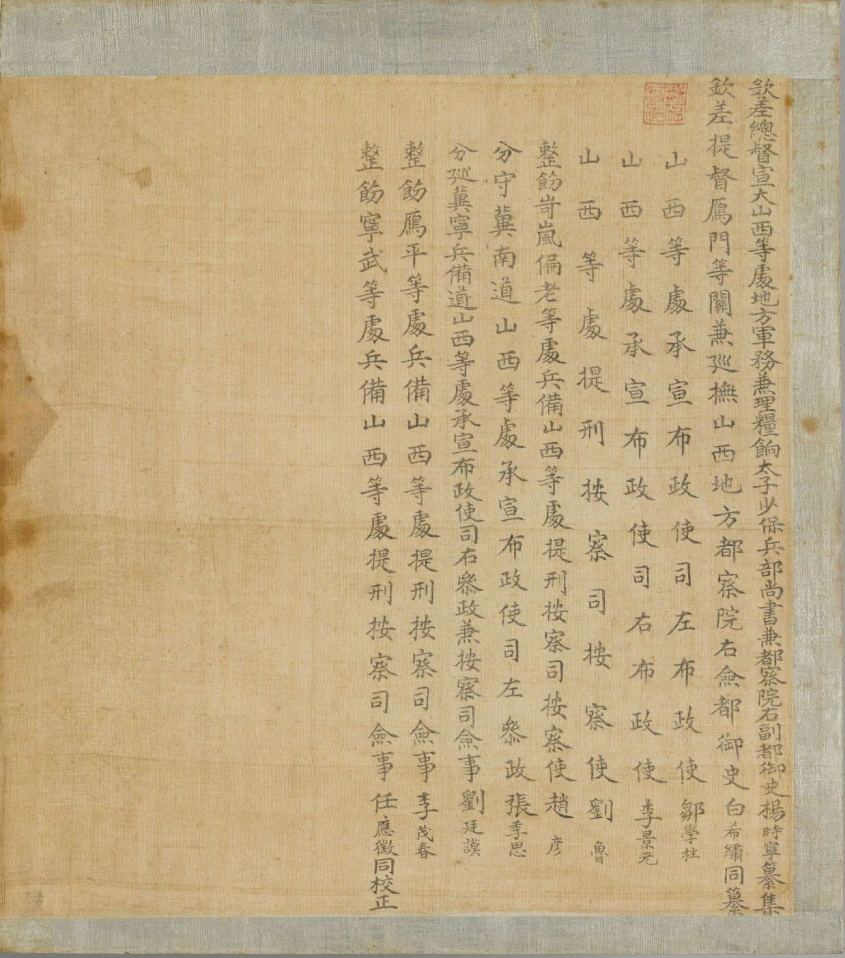 欽差總督宣大山西等處地方軍務兼理糧餉太子少保兵部尚書兼都察院右副都御史楊時寧纂集
欽差提督鴈門等關兼巡撫山西地方都察院右僉都御史白希繡同纂
山西等處承宣布政使司左布政使鄒學柱
山西等處承宣布政使司右布政使李景元
山西等處提刑按察司按察使劉
整飭岢嵐偏老等處兵備山西等處提刑按察司按察使趙彥
分守冀南道山西等處承宣布政使司左叅政張季思
分巡冀寧兵備道山西等處承宣布政使司右叅政兼按察司僉事劉廷謨
整飭鴈平等處兵備山西等處提刑按察司僉事李茂春
整飭寧武等處兵備山西等處提刑按察司僉事任應徵同校正